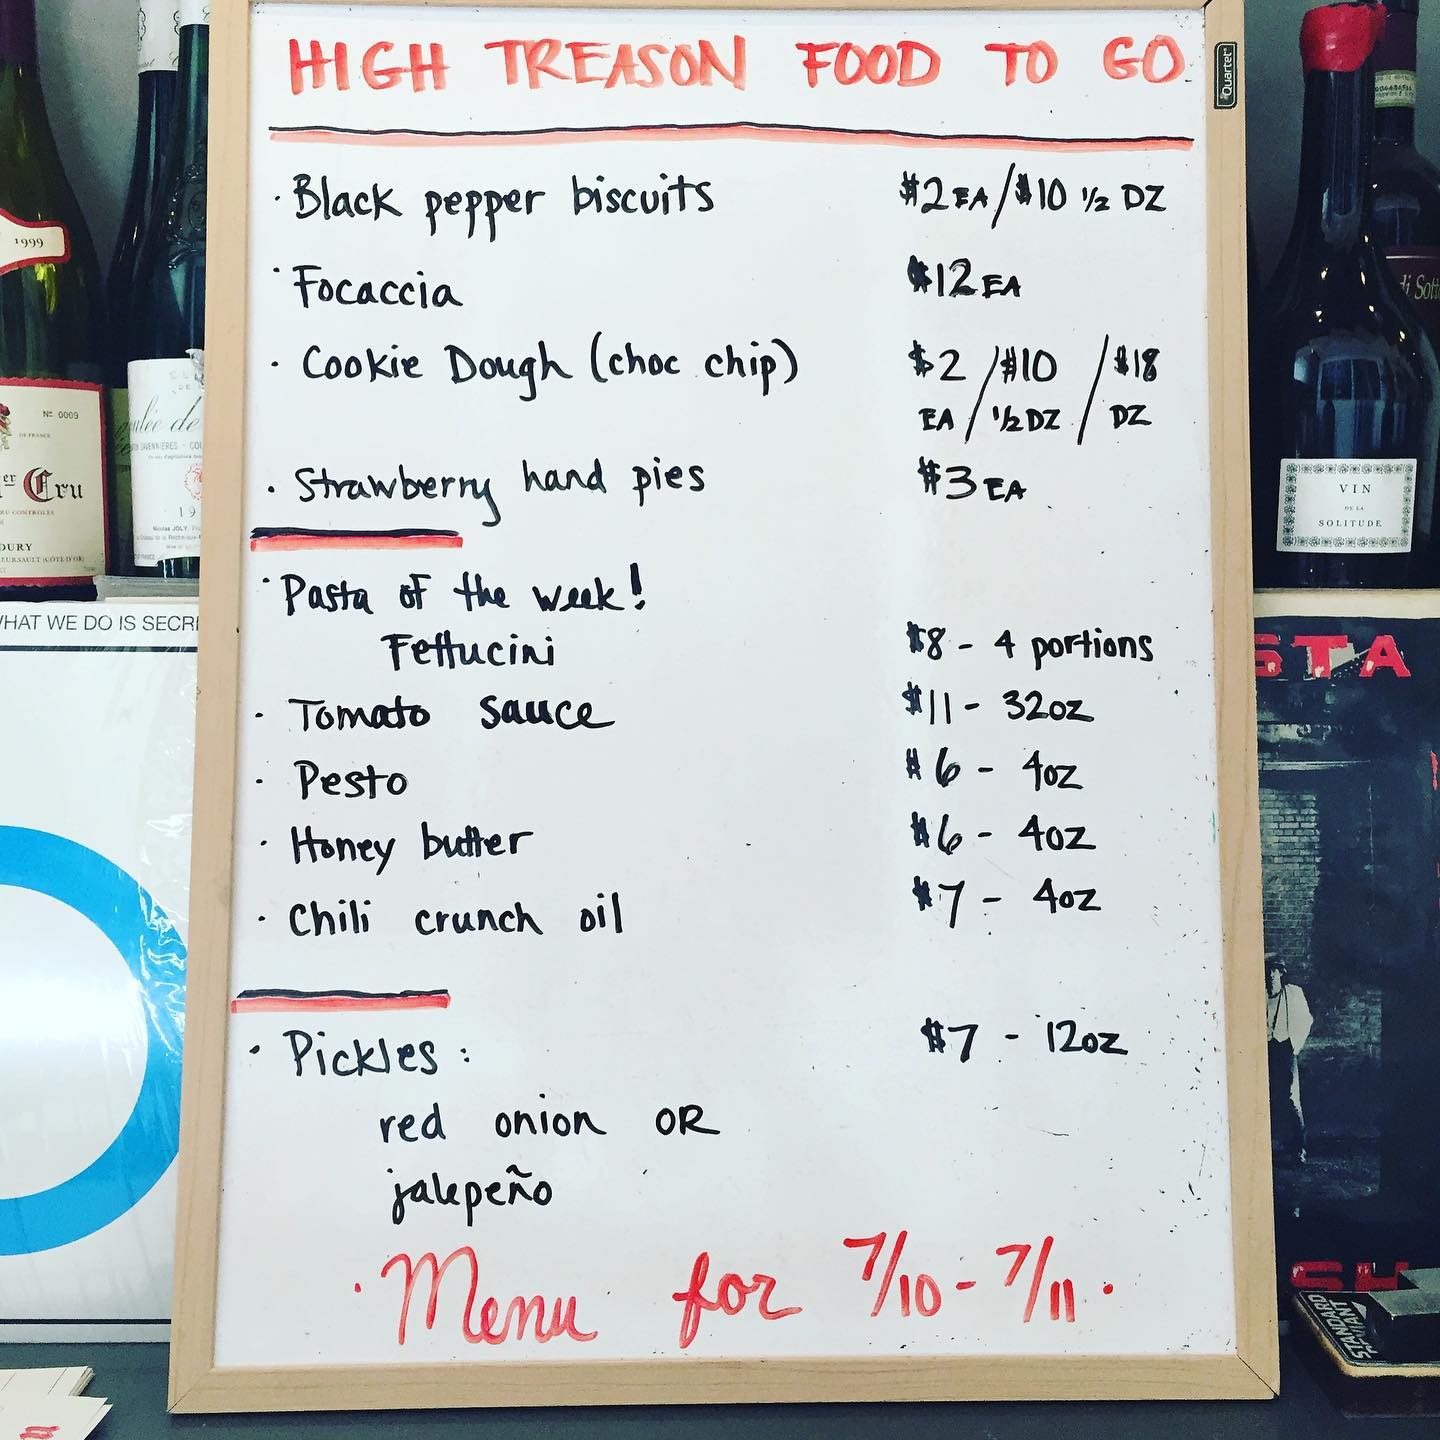 HIGH TREASON FOOD TO GO
Quartet
· Black pepper biscuits $2 EA/$10 ½ DZ
· Focaccia $12 EA
· Cookie Dough (choc chip) $2 / $10 / $18
EA / ½ DZ / DZ
· Strawberry hand pies $3 EA
· Pasta of the week!
Fettucini $8 - 4 portions
· Tomato sauce $11 - 32oz
· Pesto $6 - 4oz
· Honey butter $6 - 4oz
· Chili crunch oil $7 - 4oz
· Pickles: $7 - 12oz
red onion OR
jalepeño
· Menu for 7/10 - 7/11 ·
1999
Nº 0009
DE FRANCE
er Cru
WHAT WE DO IS SECR
19
Nicolas JOLY
VIN
DE LA
SOLITUDE
di Sotto
STA
SH
STANDARD
DEVIANT